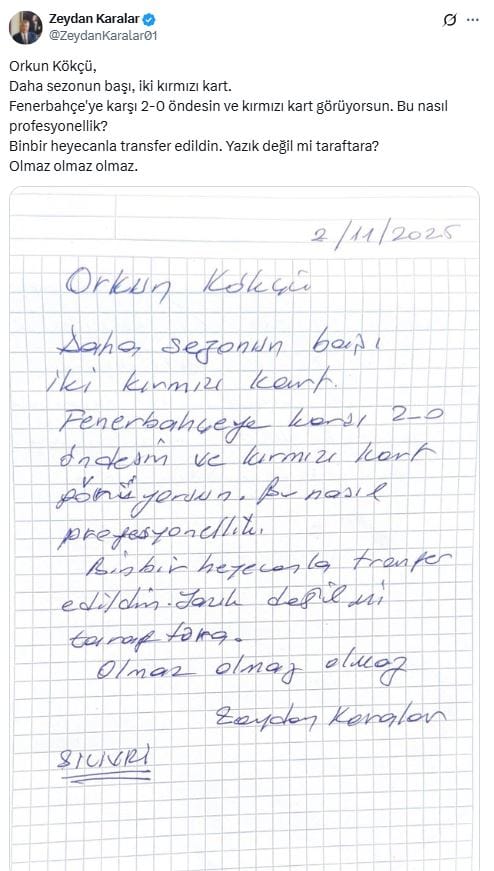 Zeydan Karalar
@ZeydanKaralar01
Orkun Kökçü,
Daha sezonun başı, iki kırmızı kart.
Fenerbahçe'ye karşı 2-0 öndesin ve kırmızı kart görüyorsun. Bu nasıl
profesyonellik?
Binbir heyecanla transfer edildin. Yazık değil mi taraftara?
Olmaz olmaz olmaz.
2/11/2025
Orkun Kökçü
Daha sezonun başı
iki kırmızı kart.
Fenerbahçeye karşı 2-0
öndesin ve kırmızı kart
görüyorsun. Bu nasıl
profesyonellik.
Binbir heyecanla tranfer
edildin. Yazık değil mi
taraftara.
Olmaz olmaz olmaz
Zeydan Karalar
SİLİVRİ